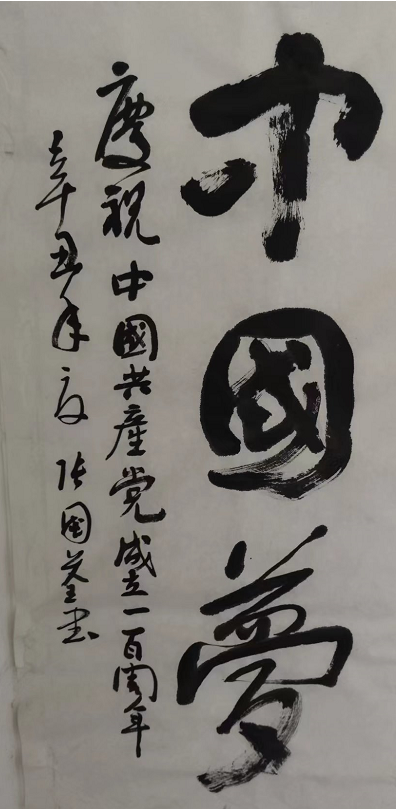 中國夢
慶祝中國共產党成立一百周年
辛丑年夏張国荃书